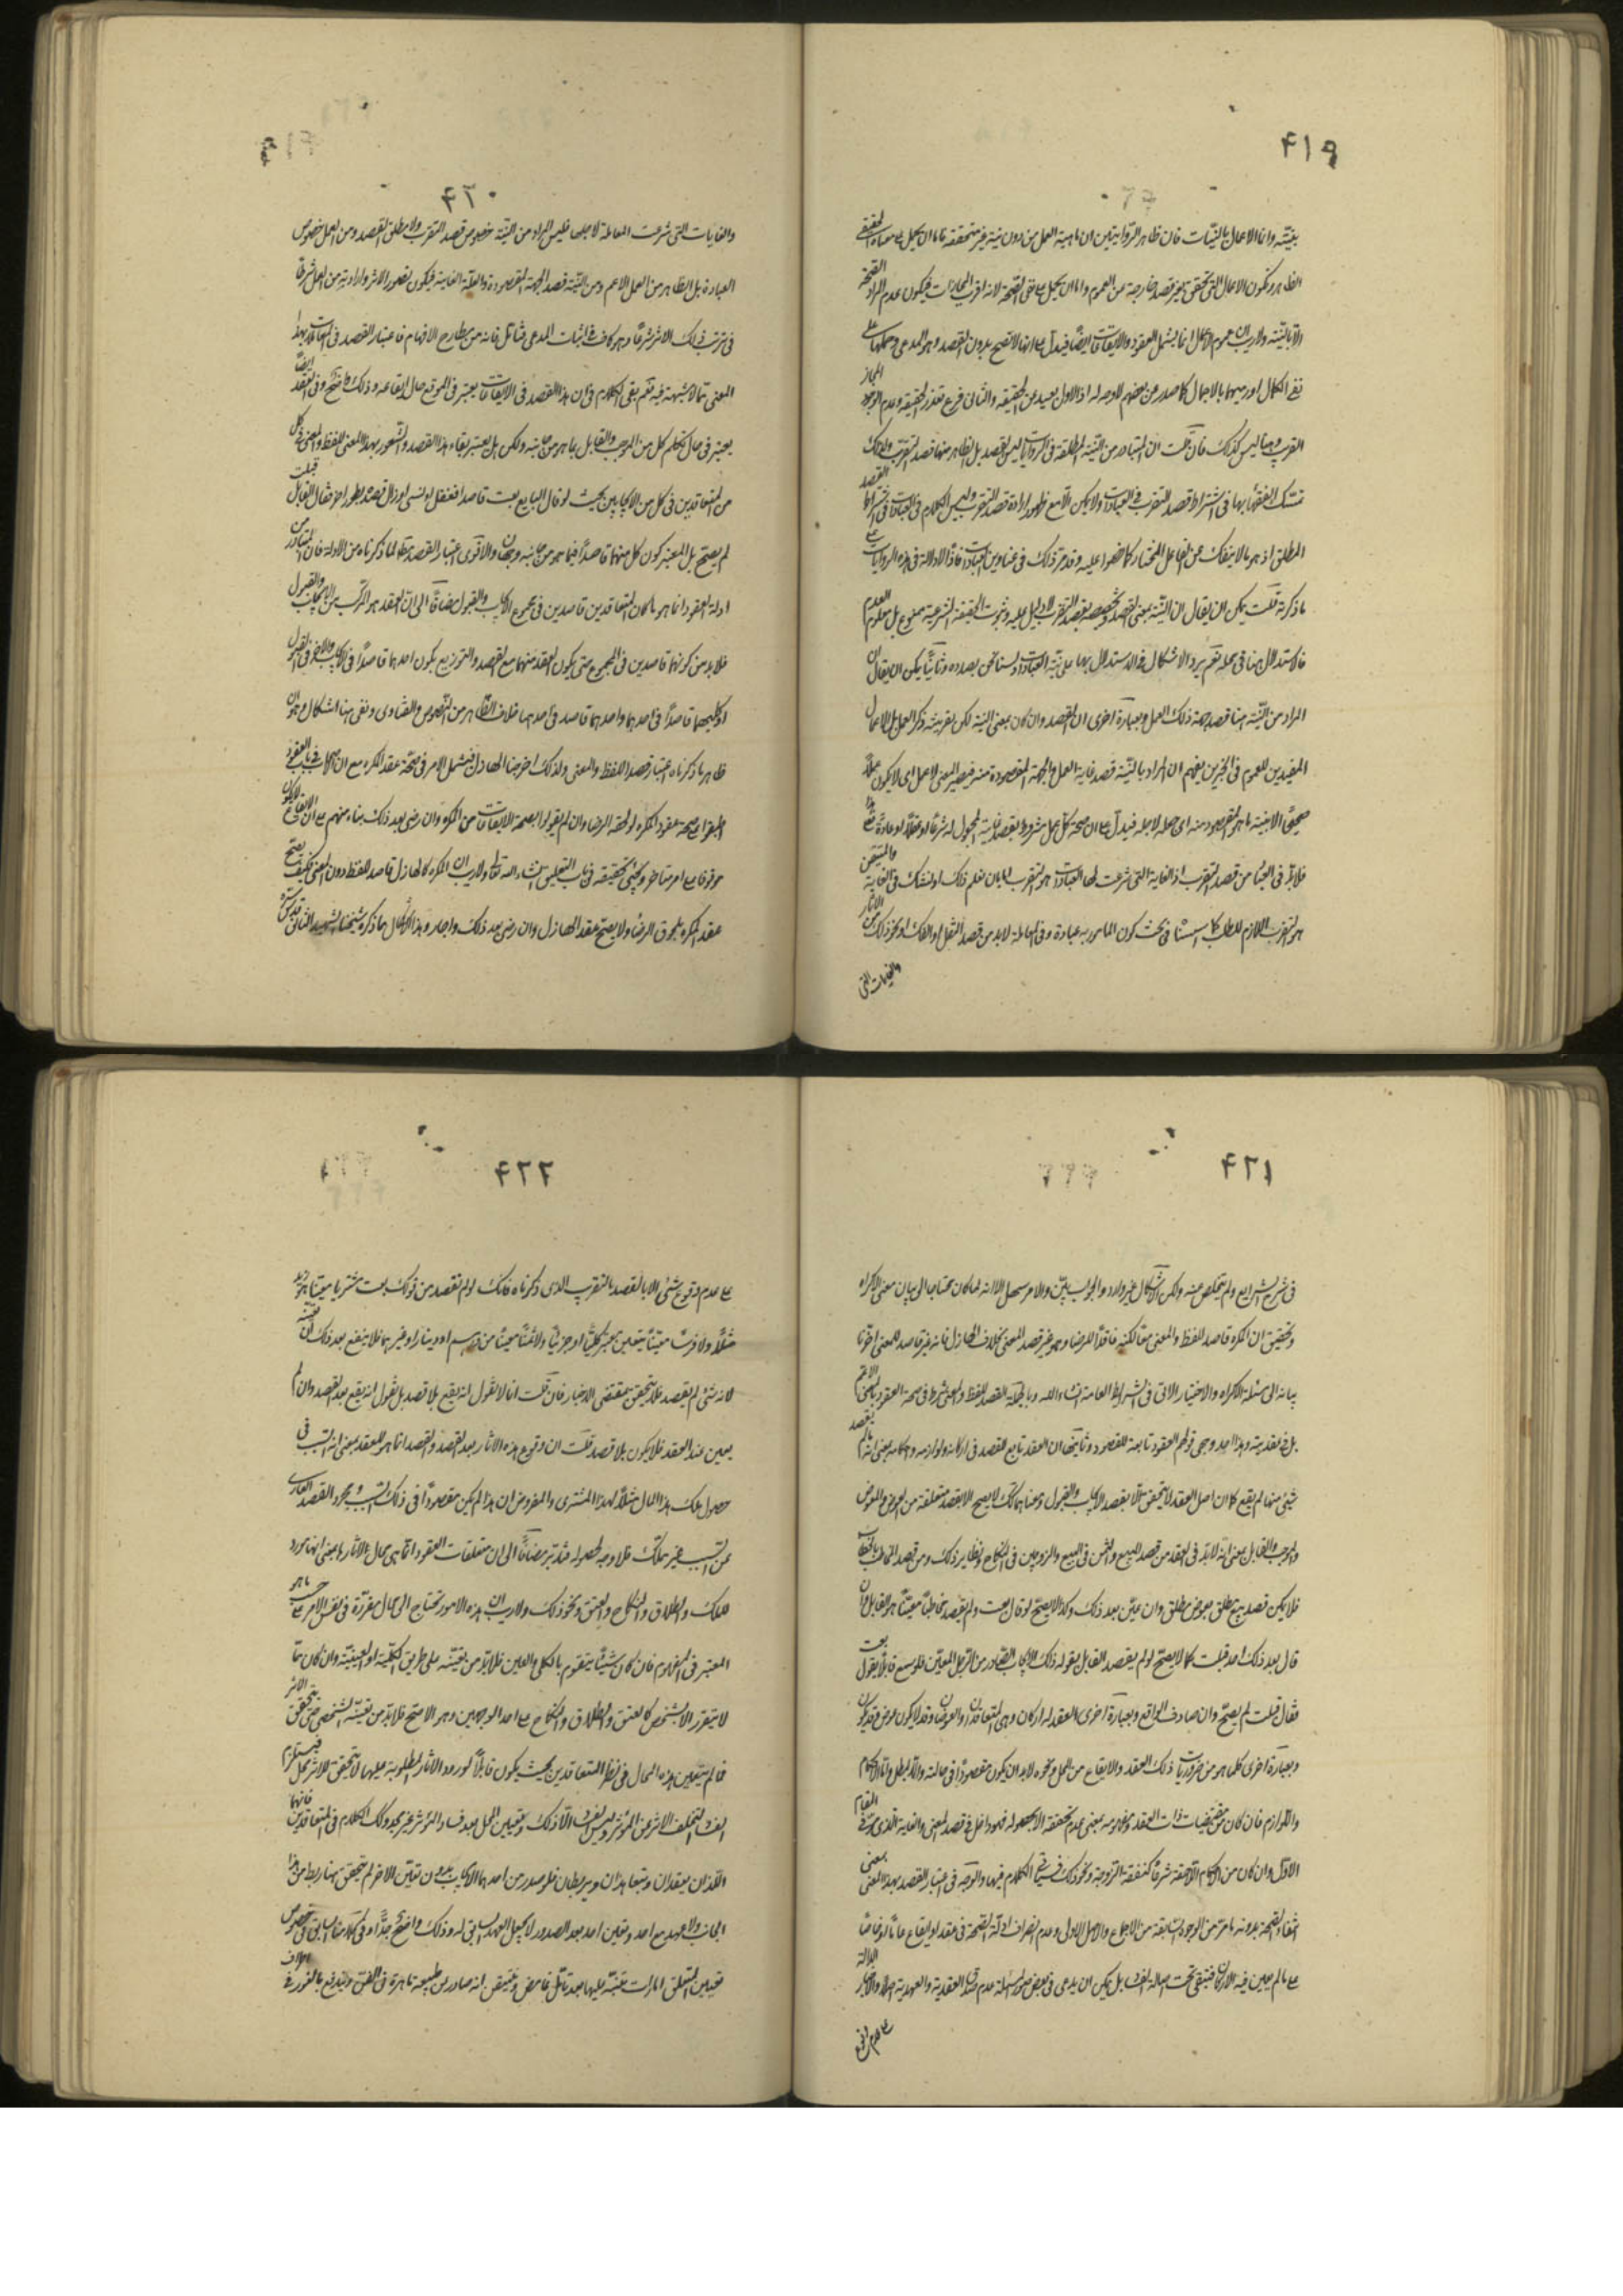 ۴۱۹
بنيّته وانما الاعمال بالنيّات فان ظاهر الروايتين ان ماهية العمل من دون نية غير متحققة فاما ان يحمل على معناه الحقيقي
الظاهر وتكون الاعمال التي تتحقق بغير قصد خارجة عن العموم واما ان يحمل على نفي الصحة لانه اقرب المجازات فيكون عدم المراد الصحة
الا بالنيّة ولا ريب ان عموم الاعمال انما يشمل العقود والايقاعات ايضاً فيدل على انها لا تصح بدون القصد وهو المدعى وحملها على
نفي الكمال او رميها بالاجمال كما صدر من بعضهم لا وجه له اذ الاول بعيد عن الحقيقة والثاني فرع تعذر الحقيقة وعدم المجاز
القرب وهنا ليس كذلك فان قلت ان المتبادر من النيّة المطلقة في الروايات ليس القصد بل الظاهر منها قصد التقرب ولذلك
تمسّك الفقهاء بها في اشتراط قصد التقرب في العبادات ولا يكون الا مع ظهور ارادة قصد التقرب وليس الكلام في العبادات في اشتراط القصد
المطلق اذ هو مما لا ينفك عن الفاعل المختار كما نصوا عليه وقد مرّ ذلك في عناوين العبادات فاذاً لا دلالة في هذه الروايات على
ما ذكرته قلت يمكن ان يقال ان النيّة بمعنى القصد وتخصيصه بقصد التقرب لا دليل عليه وثبوت الحقيقة الشرعية ممنوع بل معلوم العدم
فالاستدلال هنا في محله نعم يرد الاشكال في الاستدلال بها على نيّة العبادات ولسنا نحن بصدده وثانياً يمكن ان يقال ان
المراد من النيّة هنا قصد جهة ذلك العمل وبعبارة اخرى ان القصد وان كان بمعنى النية لكن بقرينة ذكر العمل بل الاعمال
المفيدين للعموم في الخبرين يفهم ان المراد بالنيّة قصد غاية العمل والجهة المقصودة منه فيصير المعنى لا عمل اى لا يكون عملاً
صحيحاً الا بنية ما هو المقصود منه اى جعله لاجله فيدل على ان صحة كل عمل مشروط بقصد غايته المجعول له شرعاً او عقلاً او عادة فعلى هذا
فلا بد في العبادات من قصد التقرب اذ الغاية التي شرعت لها العبادات هو التقرب اما بان نعلم ذلك او نشك في الغاية والمتيقن
هو التقرب اللازم للطلب كما اسسنا في بحث كون المامور به عبادة وفي المعاملة لا بد من قصد النقل او الفك او نحو ذلك من الاثار
والغايات التي
۴۲۰
والغايات التي شرعت المعاملة لاجلها فليس المراد من النيّة خصوص قصد التقرب ولا مطلق القصد ومن العمل خصوص
العبادة بل الظاهر من العمل الاعم ومن النيّة قصد الجهة المقصودة والعلّة الغائية فيكون تصور الاثر وارادته من العمل شرطاً
في ترتب ذلك الاثر شرعاً وهو كاف في اثبات المدعى فتامل فانه من مطارح الافهام فاعتبار القصد في المعاملات بهذا
المعنى مما لا شبهة فيه نعم بقي الكلام في ان هذا القصد في الايقاعات يعتبر في الموقع حال ايقاعه وذلك واضح وفي العقد ايضاً
يعتبر في حال تكلم كل من الموجب والقابل بما هو من جانبه ولكن هل يعتبر بقاء هذا القصد والشعور بهذا المعنى للفظ والمعنى في كل
من المتعاقدين في كل من الايجابين بحيث لو قال البايع بعت قاصداً فغفل او نسى او زال قصده بطور اخر فقال القابل قبلت
لم يصح بل المعتبر كون كل منهما قاصداً فيما هو من جانبه وجهان والاقوى اعتبار القصد مطلقا لما ذكرناه من الادلة فان المتبادر من
ادلة العقود انما هو ما كان المتعاقدين قاصدين في مجموع الايجاب والقبول مضافاً الى ان العقد هو المركب من الايجاب والقبول
فلا بد من كونهما قاصدين في المجموع حتى يكون العقد منهما مع القصد والتوزيع بكون احدهما قاصداً في الايجاب والاخر في القبول
او كليهما قاصداً في احدهما واحدهما قاصد في احدهما خلاف الظاهر من النصوص والفتاوى وبقي هنا اشكال وهو ان
ظاهر ما ذكرناه اعتبار قصد اللفظ والمعنى ولذلك اخرجنا الهازل فيشكل الامر في صحة عقد المكره مع ان الاصحاب في باب العقود
اطبقوا على صحة عقود المكره لو لحقه الرضا وان لم يقولوا بصحة الايقاعات من المكره وان رضى بعد ذلك بناء منهم على ان الايقاع لا يكون
موقوفا على امر متاخر ويجئ تحقيقه في باب التعليق انشاء الله تعالى ولا ريب ان المكره كالهازل قاصد للفظ دون المعنى فكيف يصح
عقد المكره بلحوق الرضا ولا يصح عقد الهازل وان رضى بعد ذلك واجاز وهذا الاشكال مما ذكره شيخنا الشهيد الثاني قدس سره
۴۲۱
في شرح الشرايع ولم يتخلص عنه ولكن الاشكال غير وارد والجواب بيّن والامر سهل الا انه لما كان محتاجا الى بيان معنى الاكراه
وتحقيق ان المكره قاصد للفظ والمعنى معاً لكنه فاقداً للرضا وهو غير قصد المعنى بخلاف الهازل فانه غير قاصد للمعنى اخّرنا
بيانه الى مسئلة الاكراه والاختيار الاتي في الشرائط العامة انشاء الله وبالجملة القصد للفظ والمعنى شرط في صحة العقود بالمعنى الاعم
بل في عقديته وهذا احد وجهي قولهم العقود تابعة للقصود وثانيهما ان العقد تابع للقصد في اركانه ولوازمه واحكامه بمعنى انه ما لم يقصد
شئ منهما لم يقع كما ان اصل العقد لا يتحقق الا بقصد الايجاب والقبول ومعناهما كذلك لا يصح الا بقصد متعلقه من العوض والمعوض
والموجب والقابل بمعنى انه لا بدّ في العقد من قصد المبيع والثمن في البيع والزوجين في النكاح ونظاير ذلك ومن قصد المخاطب بالخطاب
فلا يكن قصد بيع مطلق بعوض مطلق وان عيّن بعد ذلك وكذا لا يصح لو قال بعت ولم يقصد مخاطباً معيناً هو القابل وان
قال بعد ذلك احد قبلت كما لا يصح لو لم يقصد القابل بقوله ذلك الايجاب الصادر من الرجل المعيّن فلو سمع قائلاً يقول بعت
فقال قبلت لم يصح وان صادف الواقع وبعبارة اخرى العقد له اركان وهي المتعاقدان والعوضان وقد لا يكون عوض وقد يكون
وبعبارة اخرى كلما هو من ضروريات ذلك العقد والايقاع من المحل ونحوه لا بد ان يكون مقصوداً في حالته والا لبطل واما الاحكام
واللوازم فان كان من مقتضيات ذات العقد ومفهومه بمعنى عدم تحققه الا بحصوله فهو داخل في قصد المعنى والغاية الذي مرّ في المقام
الاول وان كان من الاحكام اللاحقة شرعاً كنفقة الزوجة ونحو ذلك فسيجئ الكلام فيها والوجه في اعتبار القصد بهذا المعنى بمعنى
انتفاء الصحة بدونه ما مرّ من الوجوه السابقة من الاجماع والاصل الاولى وعدم انصراف ادلة الصحة في عقد او ايقاع عاماً او خاصاً
على ما لم يعين فيه الاركان فتبقى تحت اصالة الفساد بل يمكن ان يدعى في بعض صور المسئلة عدم صدق العقدية والعهدية اصلا والاخبار الدالة
على عدم وقوع
۴۲۲
على عدم وقوع شئ الا بالقصد بالتقريب الذى ذكرناه فانك لو لم تقصد من قولك بعت مشترياً معيناً هو زيد
مثلاً ولا فرساً معيناً يتعين بعنوان كلياً او جزئياً ولا ثمناً معيناً من درهم او دينار او غيرهما فلا ينفع بعد ذلك ان تعينه
لانه شئ لم يقصد فلا يتحقق بمقتضى الاخبار فان قلت انا لا نقول انه يقع بلا قصد بل نقول انه يقع بعد القصد وان لم
يعين عند العقد فلا يكون بلا قصد قلت ان وقوع هذه الاثار بعد القصد والقصد انما هو للعقد بمعنى انه السبب في
حصول ملك هذا المال مثلاً لهذا المشترى والمفروض ان هذا لم يكن مقصوداً في ذلك السبب ومجرد القصد العارى
عن السبب غير مملك فلا وجه لحصوله فتدبر مضافاً الى ان متعلقات العقود انما هي محال لاثارها بمعنى انها مورد
للملك والطلاق والنكاح والعتق ونحو ذلك ولا ريب ان هذه الامور تحتاج الى محال مقررة في نفس الامر على حسب ما هو
المعتبر في المفهوم فان كان شيئاً يتقوم بالكلي والعين فلا بد من تعيينه على طريق الكلية او العينية وان كان مما
لا يتقرر الا بالشخص كالعتق والطلاق والنكاح على احد الوجهين وهو الاصح فلا بد من تعيينه الشخصي حتى يتحقق الاثر
فما لم يتعين هذه المحال في نظر المتعاقدين بحيث يكون قابلاً لورود الاثار المطلوبة عليها لا يتحقق للاثر محل فيستلزم
الفساد لتخلف الاثر عن المؤثر وليس الفساد الا ذلك وتعيين المحل بعد فساد المؤثر غير مجد وكذلك الكلام في المتعاقدين فانهما
اللذان يعقدان ويتعاهدان ويربطان فلو صدر من احدهما الايجاب بدون تعين الاخر لم يتحقق بهما ربط من هذا
الجانب ولا عهد مع احد وتعين احد بعد الصدور لا يجعل العهد السابق له وذلك واضح جداً وفي كلامنا السابق في خصوص
تعيين المتعلق امارات تنبّه عليها بعد تامل غامض وتيقّن انه صادر من طبيعة ماهرة في الفن ويندفع بالغور فيه